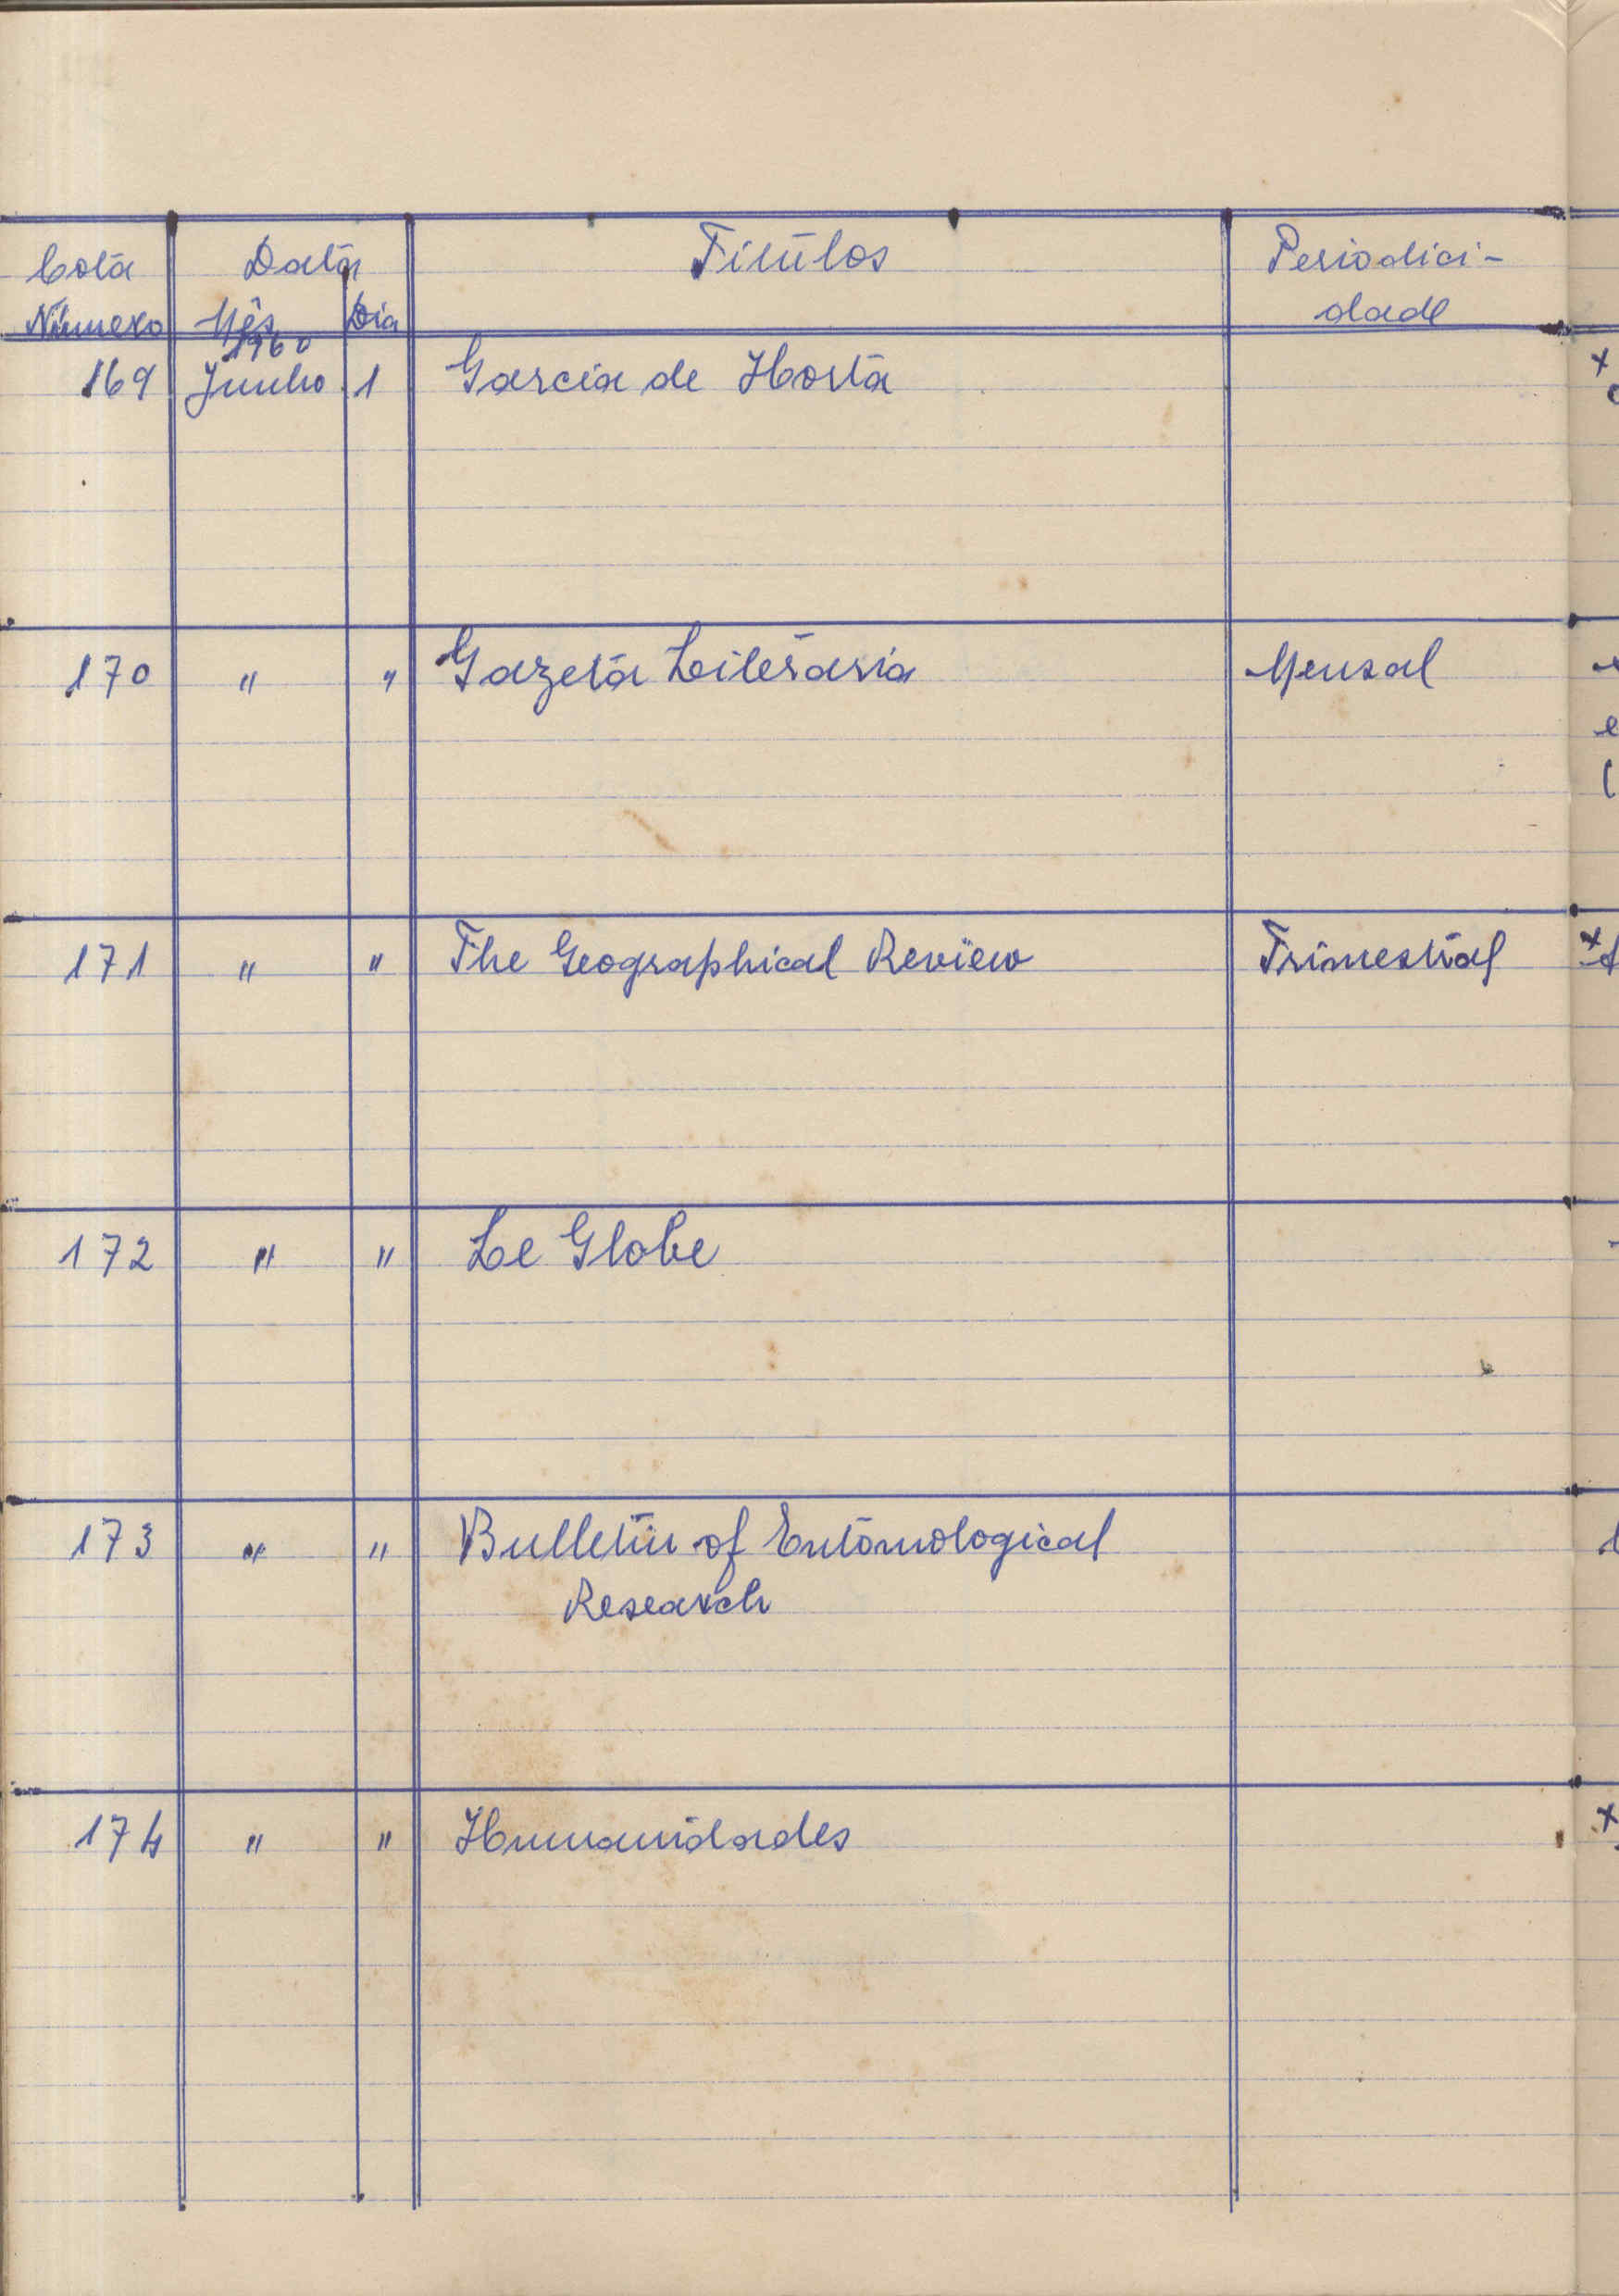 Cota Data Titulos Periodici-
Número Mês Dia dade
1960
169 Junho 1 Garcia de Horta
170 " " Gazeta Literaria Mensal
171 " " The Geographical Review Trimestral
172 " " Le Globe
173 " " Bulletin of Entomological
Research
174 " " Humanidades